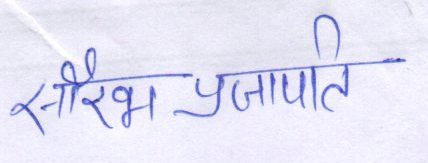 सौरभ प्रजापति